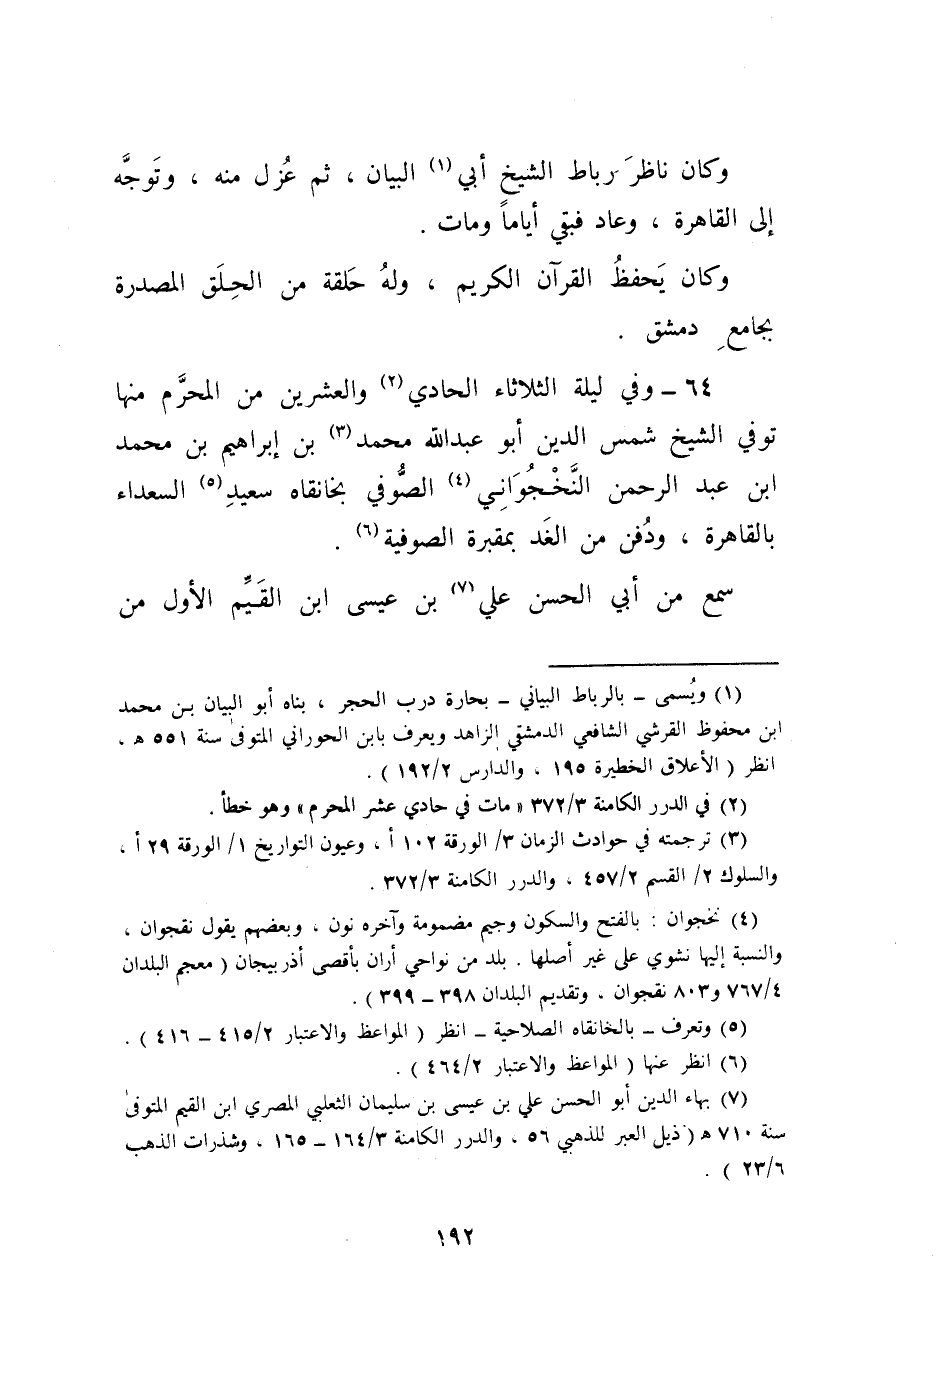 وكان ناظرَ رباط الشيخ أبي(١) البيان ، ثم عُزل منه ، وتَوجَّه
إلى القاهرة ، وعاد فبقي أياماً ومات .
وكان يَحفظُ القرآن الكريم ، ولهُ حَلقة من الحِلَق المصدرة
بجامعِ دمشق .
٦٤ – وفي ليلة الثلاثاء الحادي(٢) والعشرين من المحرَّم منها
توفي الشيخ شمس الدين أبو عبدالله محمد(٣) بن إبراهيم بن محمد
ابن عبد الرحمن النَّخْجُوَانِي(٤) الصُّوفي بخانقاه سعيدِ(٥) السعداء
بالقاهرة ، ودُفن من الغَد بمقبرة الصوفية(٦) .
سمع من أبي الحسن علي(٧) بن عيسى ابن القَيِّم الأول من
(١) ويُسمى – بالرباط البياني – بحارة درب الحجر ، بناه أبو البيان بن محمد
ابن محفوظ القرشي الشافعي الدمشقي الزاهد ويعرف بابن الحوراني المتوفى سنة ٥٥١ هـ .
انظر ( الأعلاق الخطيرة ١٩٥ ، والدارس ١٩٢/٢ ) .
(٢) في الدرر الكامنة ٣٧٢/٣ « مات في حادي عشر المحرم » وهو خطأ .
(٣) ترجمته في حوادث الزمان ٣/ الورقة ١٠٢ أ ، وعيون التواريخ ١/ الورقة ٢٩ أ ،
والسلوك ٢/ القسم ٤٥٧/٢ ، والدرر الكامنة ٣٧٢/٣ .
(٤) نخجوان : بالفتح والسكون وجيم مضمومة وآخره نون ، وبعضهم يقول نقجوان ،
والنسبة إليها نشوي على غير أصلها . بلد من نواحي أران بأقصى أذربيجان ( معجم البلدان
٧٦٧/٤ و٨٠٣ نقجوان ، وتقديم البلدان ٣٩٨ – ٣٩٩ ) .
(٥) وتعرف – بالخانقاه الصلاحية – انظر ( المواعظ والاعتبار ٤١٥/٢ – ٤١٦ ) .
(٦) انظر عنها ( المواعظ والاعتبار ٤٦٤/٢ ) .
(٧) بهاء الدين أبو الحسن علي بن عيسى بن سليمان الثعلبي المصري ابن القيم المتوفى
سنة ٧١٠ هـ ( ذيل العبر للذهبي ٥٦ ، والدرر الكامنة ١٦٤/٣ – ١٦٥ ، وشذرات الذهب
٢٣/٦ ) .
١٩٢